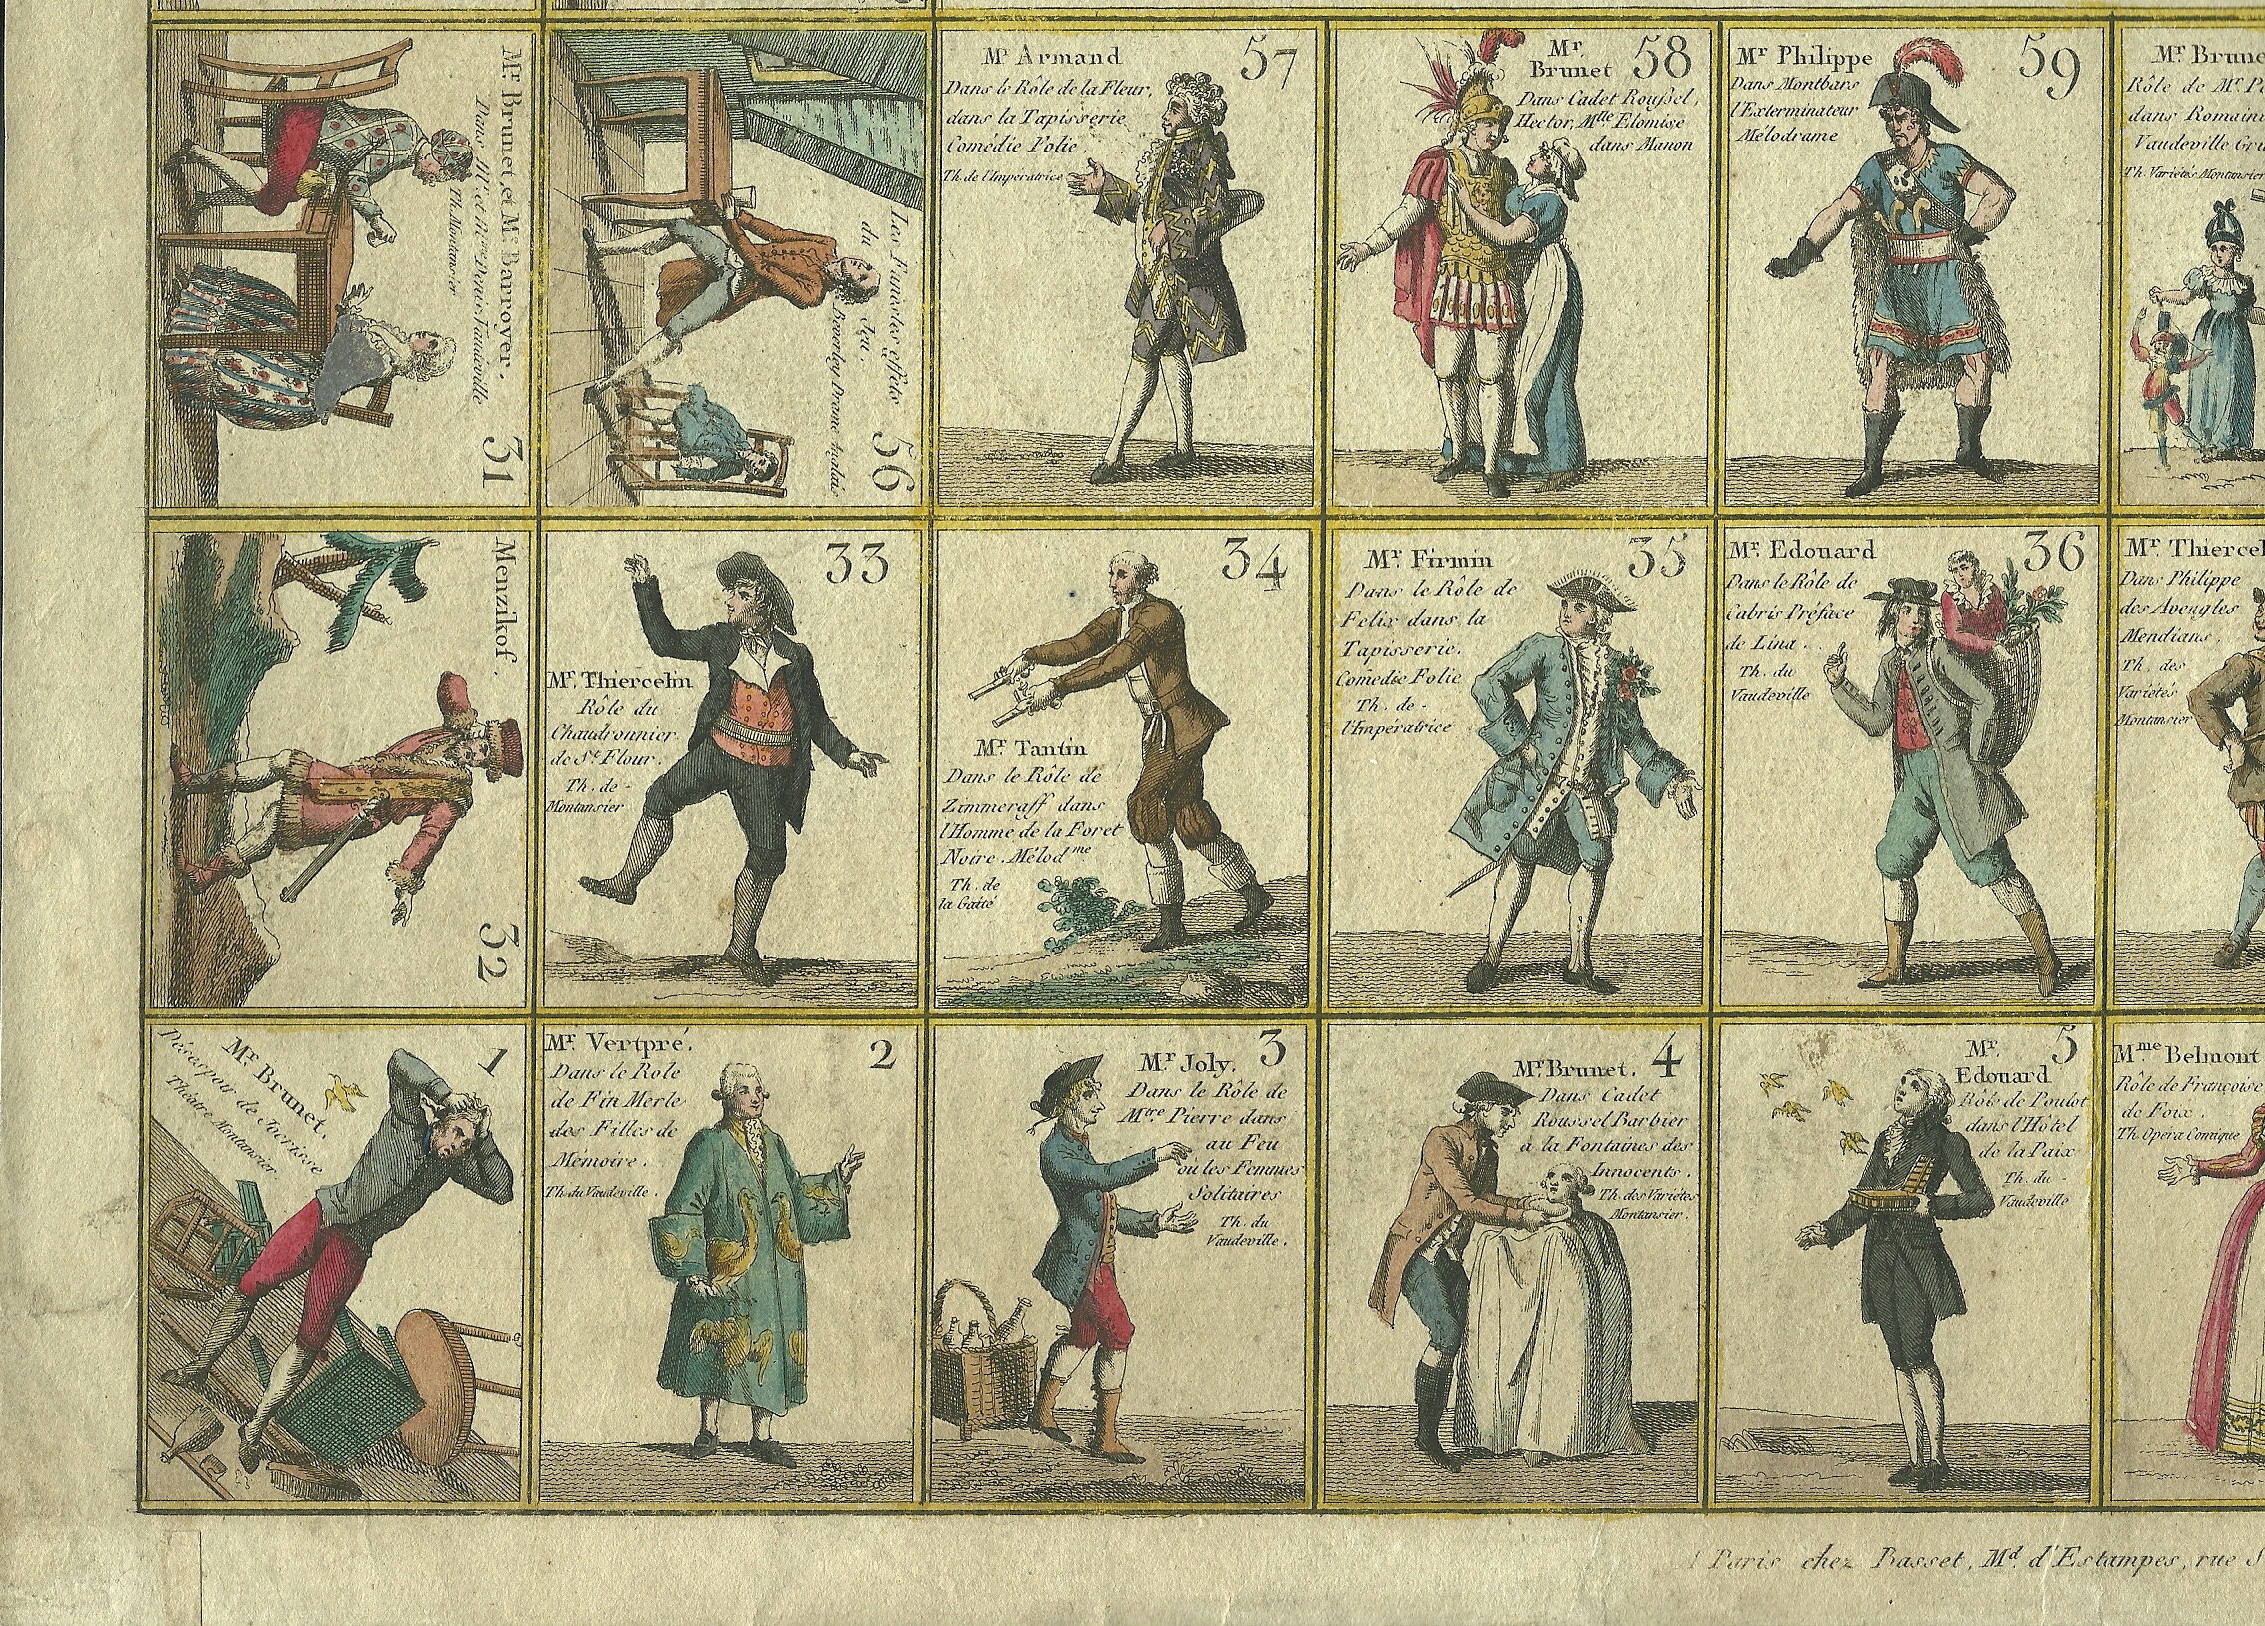 Mr. Brunet, et Mr. Barroyer.
Dans Mr. et Mme. Denis. Vaudeville
Th. Montansier
31
Les Funestes effets
du Jeu.
Beverley Drame Anglais
56
Mr. Armand
57
Dans le Rôle de la Fleur,
dans la Tapisserie
Comédie Folie.
Th. de l'Imperatrice
Mr.
Brunet
58
Dans Cadet Roussel,
Hector, Mlle Elomise
dans Manon
Mr Philippe
59
Dans Montbars
l'Exterminateur
Mélodrame
Mr. Brune
Rôle de Mr. P
dans Romain
Vaudeville Gri
Th. Variétés Montansier
Menzikof.
32
33
Mr. Thiercelin
Rôle du
Chaudronnier
de St. Flour.
Th. de -
Montansier
34
Mr. Tantin
Dans le Rôle de
Zimmeraff dans
l'Homme de la Foret
Noire. Mélodme
Th. de
la Gaité
Mr. Firmin
35
Dans le Rôle de
Felix dans la
Tapisserie.
Comédie Folie
Th. de -
l'Impératrice
Mr. Edouard
36
Dans le Rôle de
Cabris Préface
de Lina.
Th. du
Vaudeville
Mr. Thiercel
Dans Philippe
des Aveugles
Mendians.
Th. des
Variétés
Montansier
1
Mr. Brunet.
Désespoir de Jocrisse
Théâtre Montansier
Mr. Vertpré.
2
Dans le Role
de Fin Merle
des Filles de
Mémoire.
Th. du Vaudeville.
Mr. Joly.
3
Dans le Rôle de
Mtre Pierre dans
au Feu
ou les Femmes
Solitaires
Th. du
Vaudeville.
Mr. Brunet.
4
Dans Cadet
Roussel Barbier
a la Fontaines des
Innocents.
Th. des Varietes
Montansier.
Mr.
Edouard
5
Role de Poulot
dans l'Hôtel
de la Paix
Th. du -
Vaudeville
Mme Belmont
Rôle de Françoise
de Foix.
Th. Opéra Comique
A Paris chez Basset, Md. d'Estampes, rue S